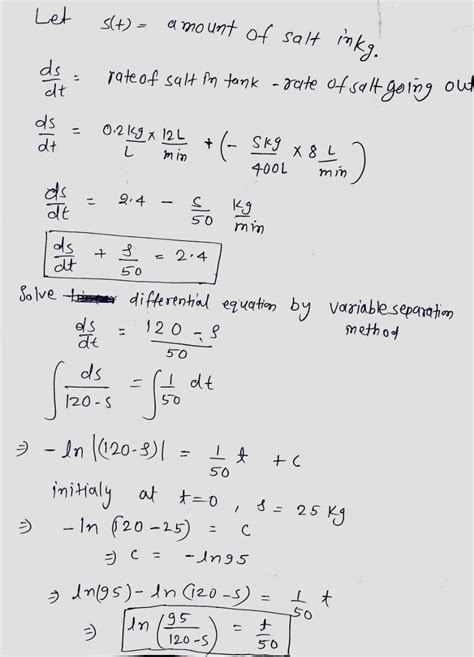 Let s(t) = amount of salt in kg.
ds/dt = rate of salt in tank - rate of salt going out
ds/dt = 0.2 kg/L × 12L/min + (- s kg/400L × 8 L/min)
ds/dt = 2.4 - s/50 kg/min
ds/dt + s/50 = 2.4
Solve differential equation by variable separation method
ds/dt = 120 - s/50
∫ ds/120-s = ∫ 1/50 dt
⇒ -ln |(120-s)| = 1/50 t + c
initialy at t=0, s = 25 kg
⇒ -ln (120-25) = c
⇒ c = -ln 95
⇒ ln(95) - ln (120-s) = 1/50 t
⇒ ln (95/120-s) = t/50